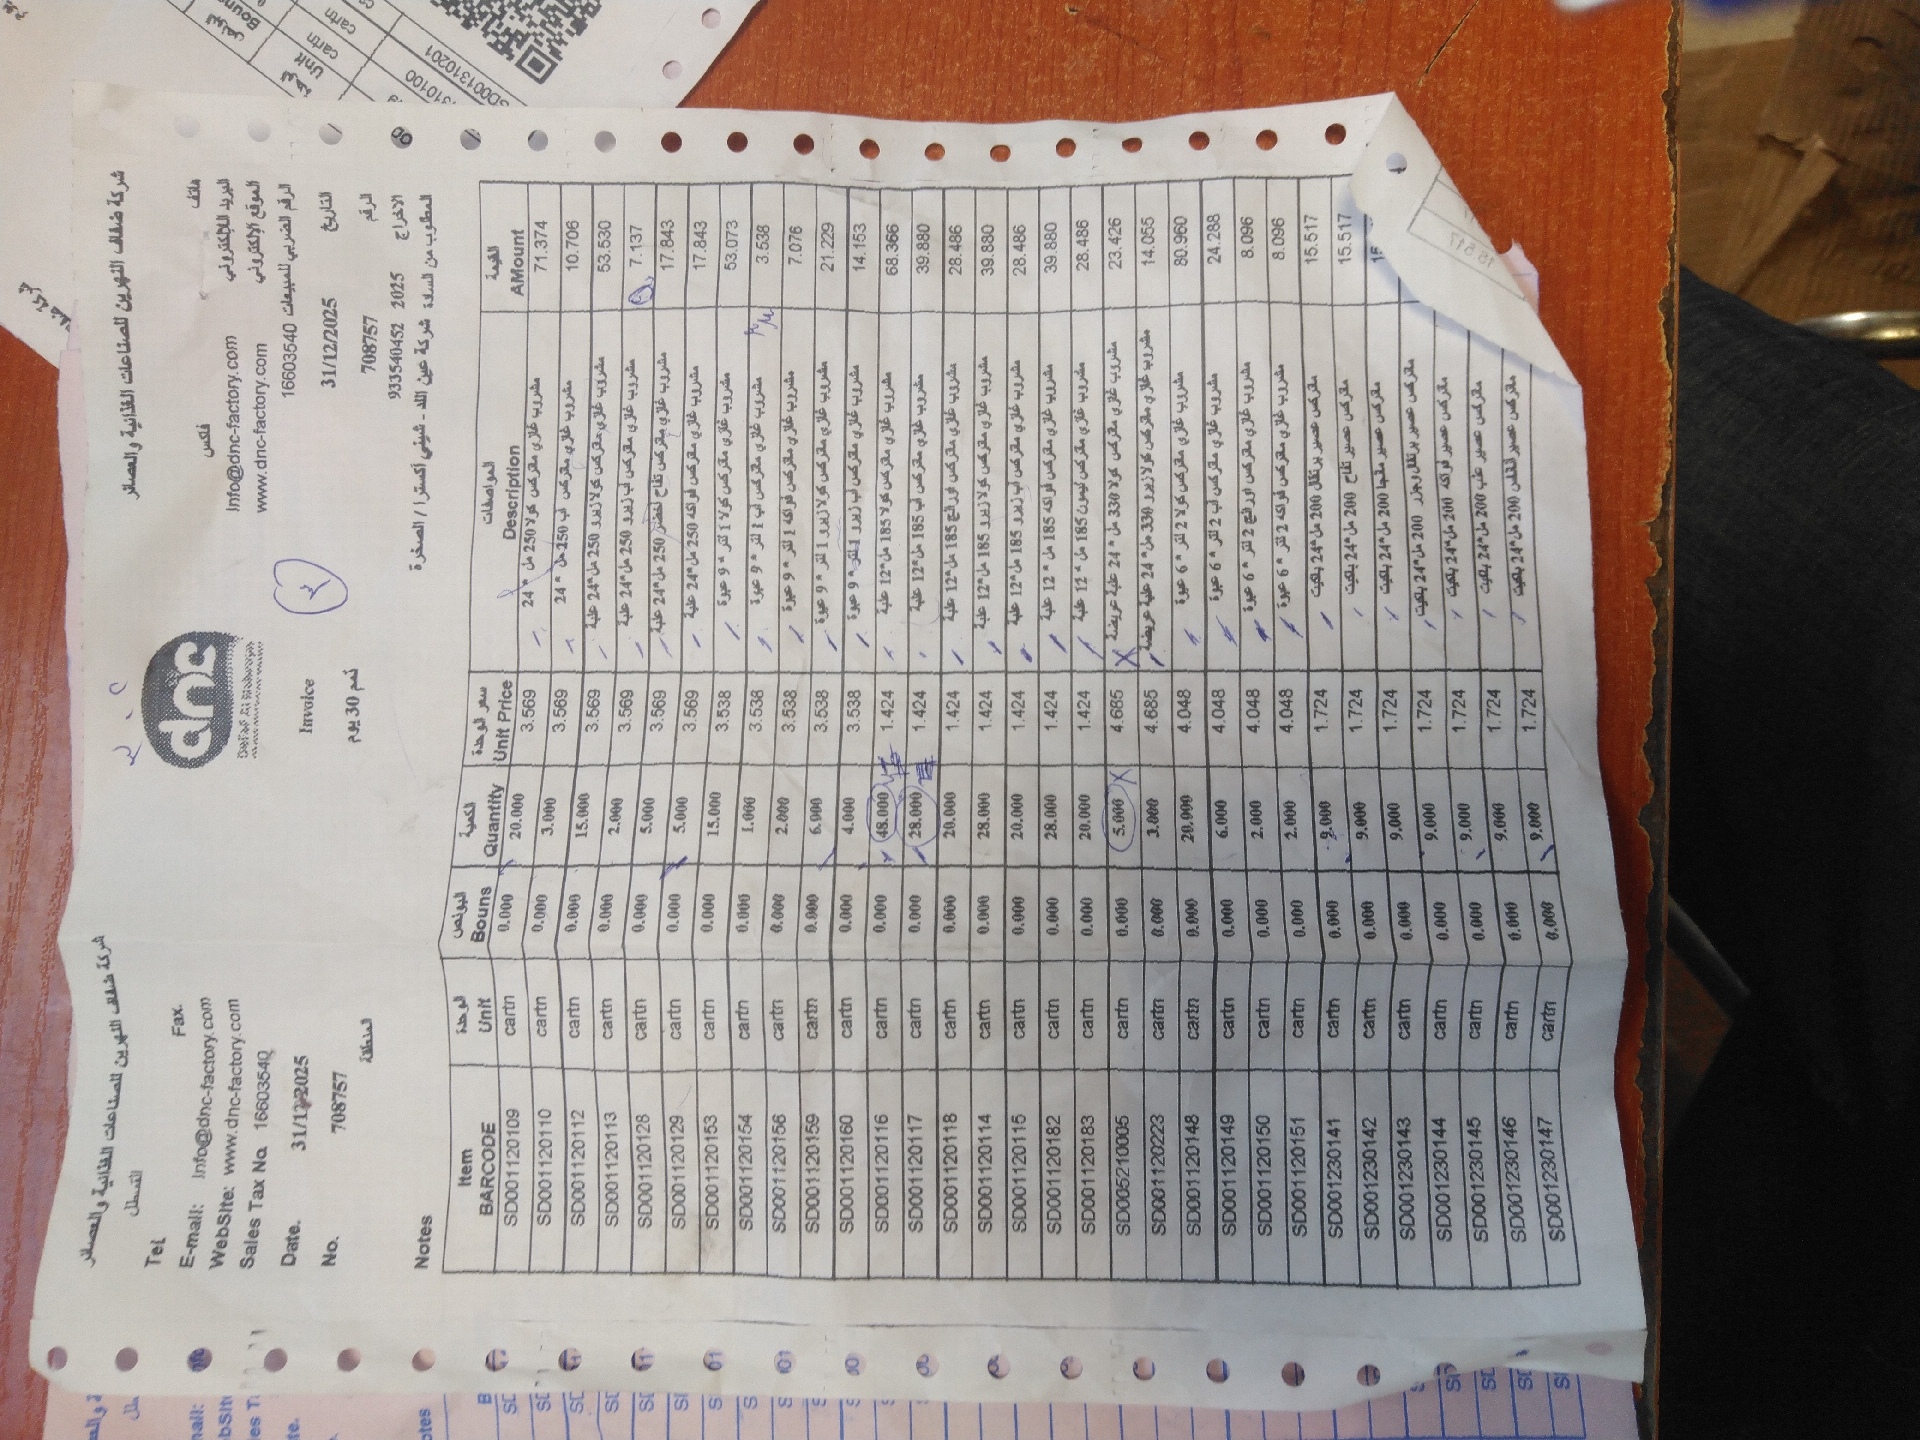 شركة ضفاف النهرين للصناعات الغذائية والعصائر
شركة ضفاف النهرين للصناعات الغذائية والعصائر
dnc
Tel
Fax.
فاكس
هاتف
E-mail: Info@dnc-factory.com
Info@dnc-factory.com البريد الالكتروني
WebSite: www.dnc-factory.com
www.dnc-factory.com الموقع الالكتروني
Sales Tax No. 16603540
16603540 الرقم الضريبي للمبيعات
Date. 31/12/2025
Invoice
31/12/2025 التاريخ
No. 708757
ذمم 30 يوم
708757 الرقم
المنطقة
933540452 2025 الاخراج
Notes
المطلوب من السادة شركة عين الله - شيني اكسترا / الصخرة
Item BARCODE | الوحدة Unit | البونص Bouns | الكمية Quantity | سعر الوحدة Unit Price | المواصفات Description | القيمة AMount
SD001120109 cartn 0.000 20.000 3.569 مشروب غازي مفركس كولا 250 مل * 24 71.374
SD001120110 cartn 0.000 3.000 3.569 مشروب غازي مفركس اب 250 مل * 24 10.706
SD001120112 cartn 0.000 15.000 3.569 مشروب غازي مفركس كولا زيرو 250 مل*24 علبة 53.530
SD001120113 cartn 0.000 2.000 3.569 مشروب غازي مفركس اب زيرو 250 مل*24 علبة 7.137
SD001120128 cartn 0.000 5.000 3.569 مشروب غازي مفركس تفاح اخضر 250 مل*24 علبة 17.843
SD001120129 cartn 0.000 5.000 3.569 مشروب غازي مفركس فواكه 250 مل*24 علبة 17.843
SD001120153 cartn 0.000 15.000 3.538 مشروب غازي مفركس كولا 1 لتر * 9 عبوة 53.073
SD001120154 cartn 0.000 1.000 3.538 مشروب غازي مفركس اب 1 لتر * 9 عبوة 3.538
SD001120156 cartn 0.000 2.000 3.538 مشروب غازي مفركس فواكه 1 لتر * 9 عبوة 7.076
SD001120159 cartn 0.000 6.000 3.538 مشروب غازي مفركس كولا زيرو 1 لتر * 9 عبوة 21.229
SD001120160 cartn 0.000 4.000 3.538 مشروب غازي مفركس اب زيرو 1 لتر * 9 عبوة 14.153
SD001120116 cartn 0.000 48.000 1.424 مشروب غازي مفركس كولا 185 مل*12 علبة 68.366
SD001120117 cartn 0.000 28.000 1.424 مشروب غازي مفركس اب 185 مل*12 علبة 39.880
SD001120118 cartn 0.000 20.000 1.424 مشروب غازي مفركس اورانج 185 مل*12 علبة 28.486
SD001120114 cartn 0.000 28.000 1.424 مشروب غازي مفركس كولا زيرو 185 مل*12 علبة 39.880
SD001120115 cartn 0.000 20.000 1.424 مشروب غازي مفركس اب زيرو 185 مل*12 علبة 28.486
SD001120182 cartn 0.000 28.000 1.424 مشروب غازي مفركس فواكه 185 مل * 12 علبة 39.880
SD001120183 cartn 0.000 20.000 1.424 مشروب غازي مفركس ليمون 185 مل * 12 علبة 28.486
SD005210005 cartn 0.000 5.000 4.685 مشروب غازي مفركس كولا 330 مل * 24 علبة عريضة 23.426
SD001120223 cartn 0.000 3.000 4.685 مشروب غازي مفركس كولا زيرو 330 مل* 24 علبة عريضة 14.055
SD001120148 cartn 0.000 20.000 4.048 مشروب غازي مفركس كولا 2 لتر * 6 عبوة 80.960
SD001120149 cartn 0.000 6.000 4.048 مشروب غازي مفركس اب 2 لتر * 6 عبوة 24.288
SD001120150 cartn 0.000 2.000 4.048 مشروب غازي مفركس اورانج 2 لتر * 6 عبوة 8.096
SD001120151 cartn 0.000 2.000 4.048 مشروب غازي مفركس فواكه 2 لتر * 6 عبوة 8.096
SD001230141 cartn 0.000 9.000 1.724 مفركس عصير برتقال 200 مل*24 بلكيت 15.517
SD001230142 cartn 0.000 9.000 1.724 مفركس عصير تفاح 200 مل*24 بلكيت 15.517
SD001230143 cartn 0.000 9.000 1.724 مفركس عصير مانجا 200 مل*24 بلكيت 15
SD001230144 cartn 0.000 9.000 1.724 مفركس عصير برتقال وجزر 200 مل*24 بلكيت
SD001230145 cartn 0.000 9.000 1.724 مفركس عصير فواكه 200 مل*24 بلكيت
SD001230146 cartn 0.000 9.000 1.724 مفركس عصير عنب 200 مل*24 بلكيت
SD001230147 cartn 0.000 9.000 1.724 مفركس عصير اناناس 200 مل*24 بلكيت
15.517
SD001310201
Unit
cartn
cartn